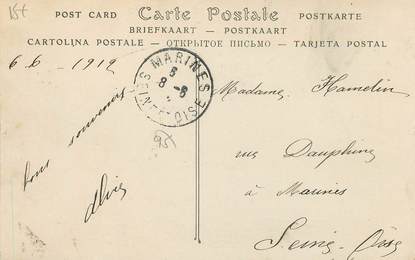 15€
POST CARD Carte Postale POSTKARTE
BRIEFKAART — POSTKAART
CARTOLINA POSTALE — ОТКРЫТОЕ ПИСЬМО — TARJETA POSTAL
6_6 _1912
MARINES
8
8 -6
SEINE OISE
95
Bons souvenirs
Madame Hamelin
rue Dauphine
à Marines
Seine-Oise